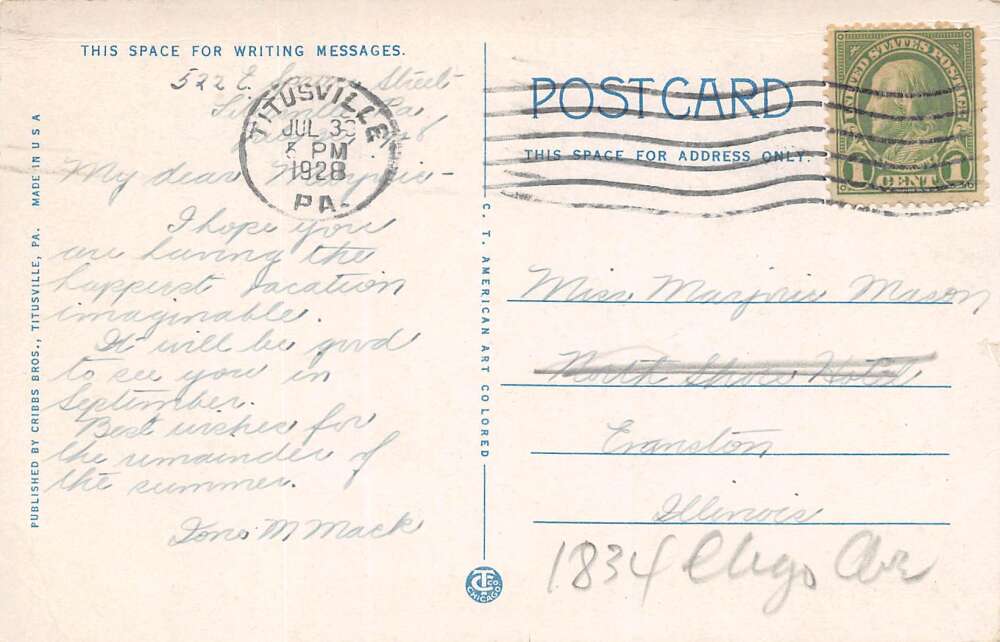 THIS SPACE FOR WRITING MESSAGES.
522 E. Street
TITUSVILLE
JUL 30
5 PM
1928
PA.
My dear Marjorie -
I hope you
are having the
happiest vacation
imaginable.
It will be good
to see you in
September.
Best wishes for
the remainder of
the summer.
M Mack
PUBLISHED BY CRIBBS BROS., TITUSVILLE, PA. MADE IN USA
C. T. AMERICAN ART COLORED
POST CARD
THIS SPACE FOR ADDRESS ONLY.
UNITED STATES POSTAGE
1 CENT 1
Miss Marjorie Mason
North Shore Hotel
Evanston
Illinois
1834 Chgo Ave
CT CO
CHICAGO